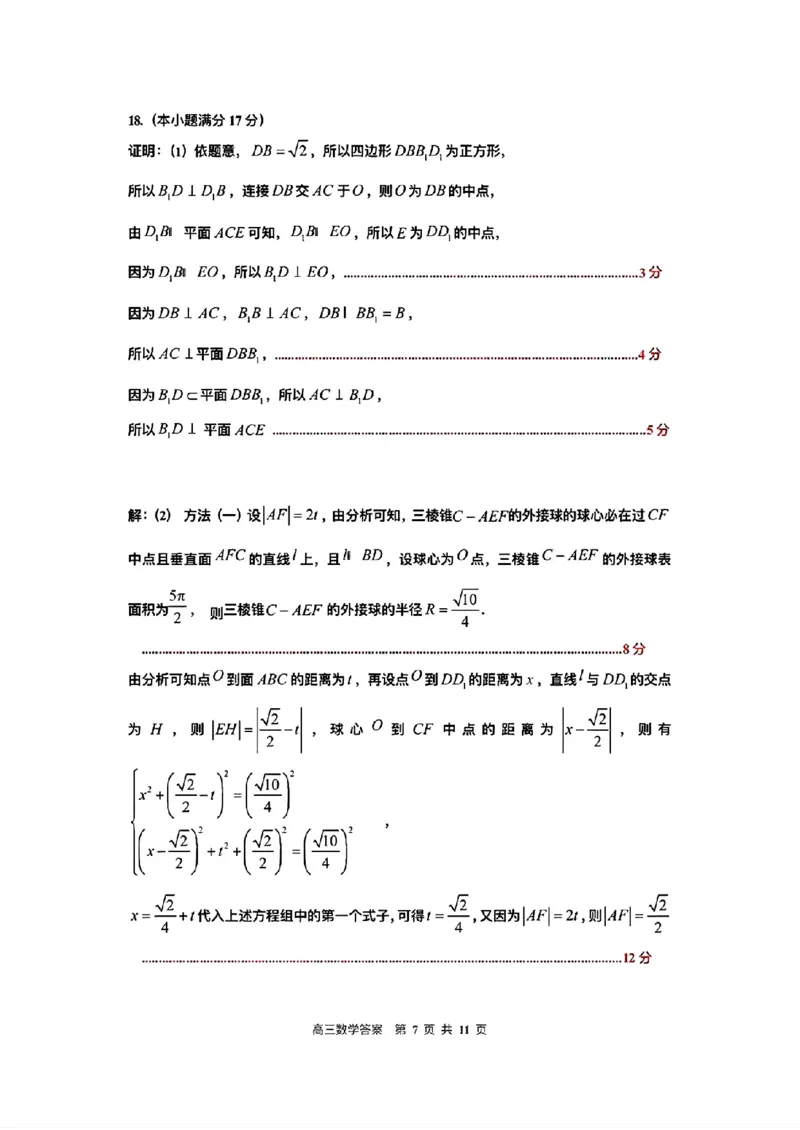 18.（本小题满分 17 分）
证明：（1）依题意， DB = √2，所以四边形 DBB₁D₁ 为正方形，
所以 B₁D ⊥ D₁B ，连接 DB 交 AC 于 O ，则 O 为 DB 的中点，
由 D₁B∥ 平面 ACE 可知， D₁B∥ EO ，所以 E 为 DD₁ 的中点，
因为 D₁B∥ EO ，所以 B₁D ⊥ EO ，……………………3 分
因为 DB ⊥ AC ， B₁B ⊥ AC ， DB I BB₁ = B ，
所以 AC ⊥ 平面 DBB₁ ，……………………4 分
因为 B₁D ⊂ 平面 DBB₁ ，所以 AC ⊥ B₁D ，
所以 B₁D ⊥ 平面 ACE ……………………5 分
解：（2） 方法（一）设 |AF| = 2t ，由分析可知，三棱锥 C − AEF 的外接球的球心必在过 CF
中点且垂直面 AFC 的直线 l 上，且 l∥ BD ，设球心为 O 点，三棱锥 C − AEF 的外接球表
面积为 5π/2 ， 则三棱锥 C − AEF 的外接球的半径 R = √10/4 .
……………………8 分
由分析可知点 O 到面 ABC 的距离为 t ，再设点 O 到 DD₁ 的距离为 x ，直线 l 与 DD₁ 的交点
为 H ，则 |EH| = |√2/2 − t| ，球心 O 到 CF 中点的距离为 |x − √2/2| ，则有
{ x² + (√2/2 − t)² = (√10/4)²
(x − √2/2)² + t² + (√2/2)² = (√10/4)² ，
x = √2/4 + t 代入上述方程组中的第一个式子，可得 t = √2/4 ，又因为 |AF| = 2t ，则 |AF| = √2/2
……………………12 分
高三数学答案 第 7 页 共 11 页